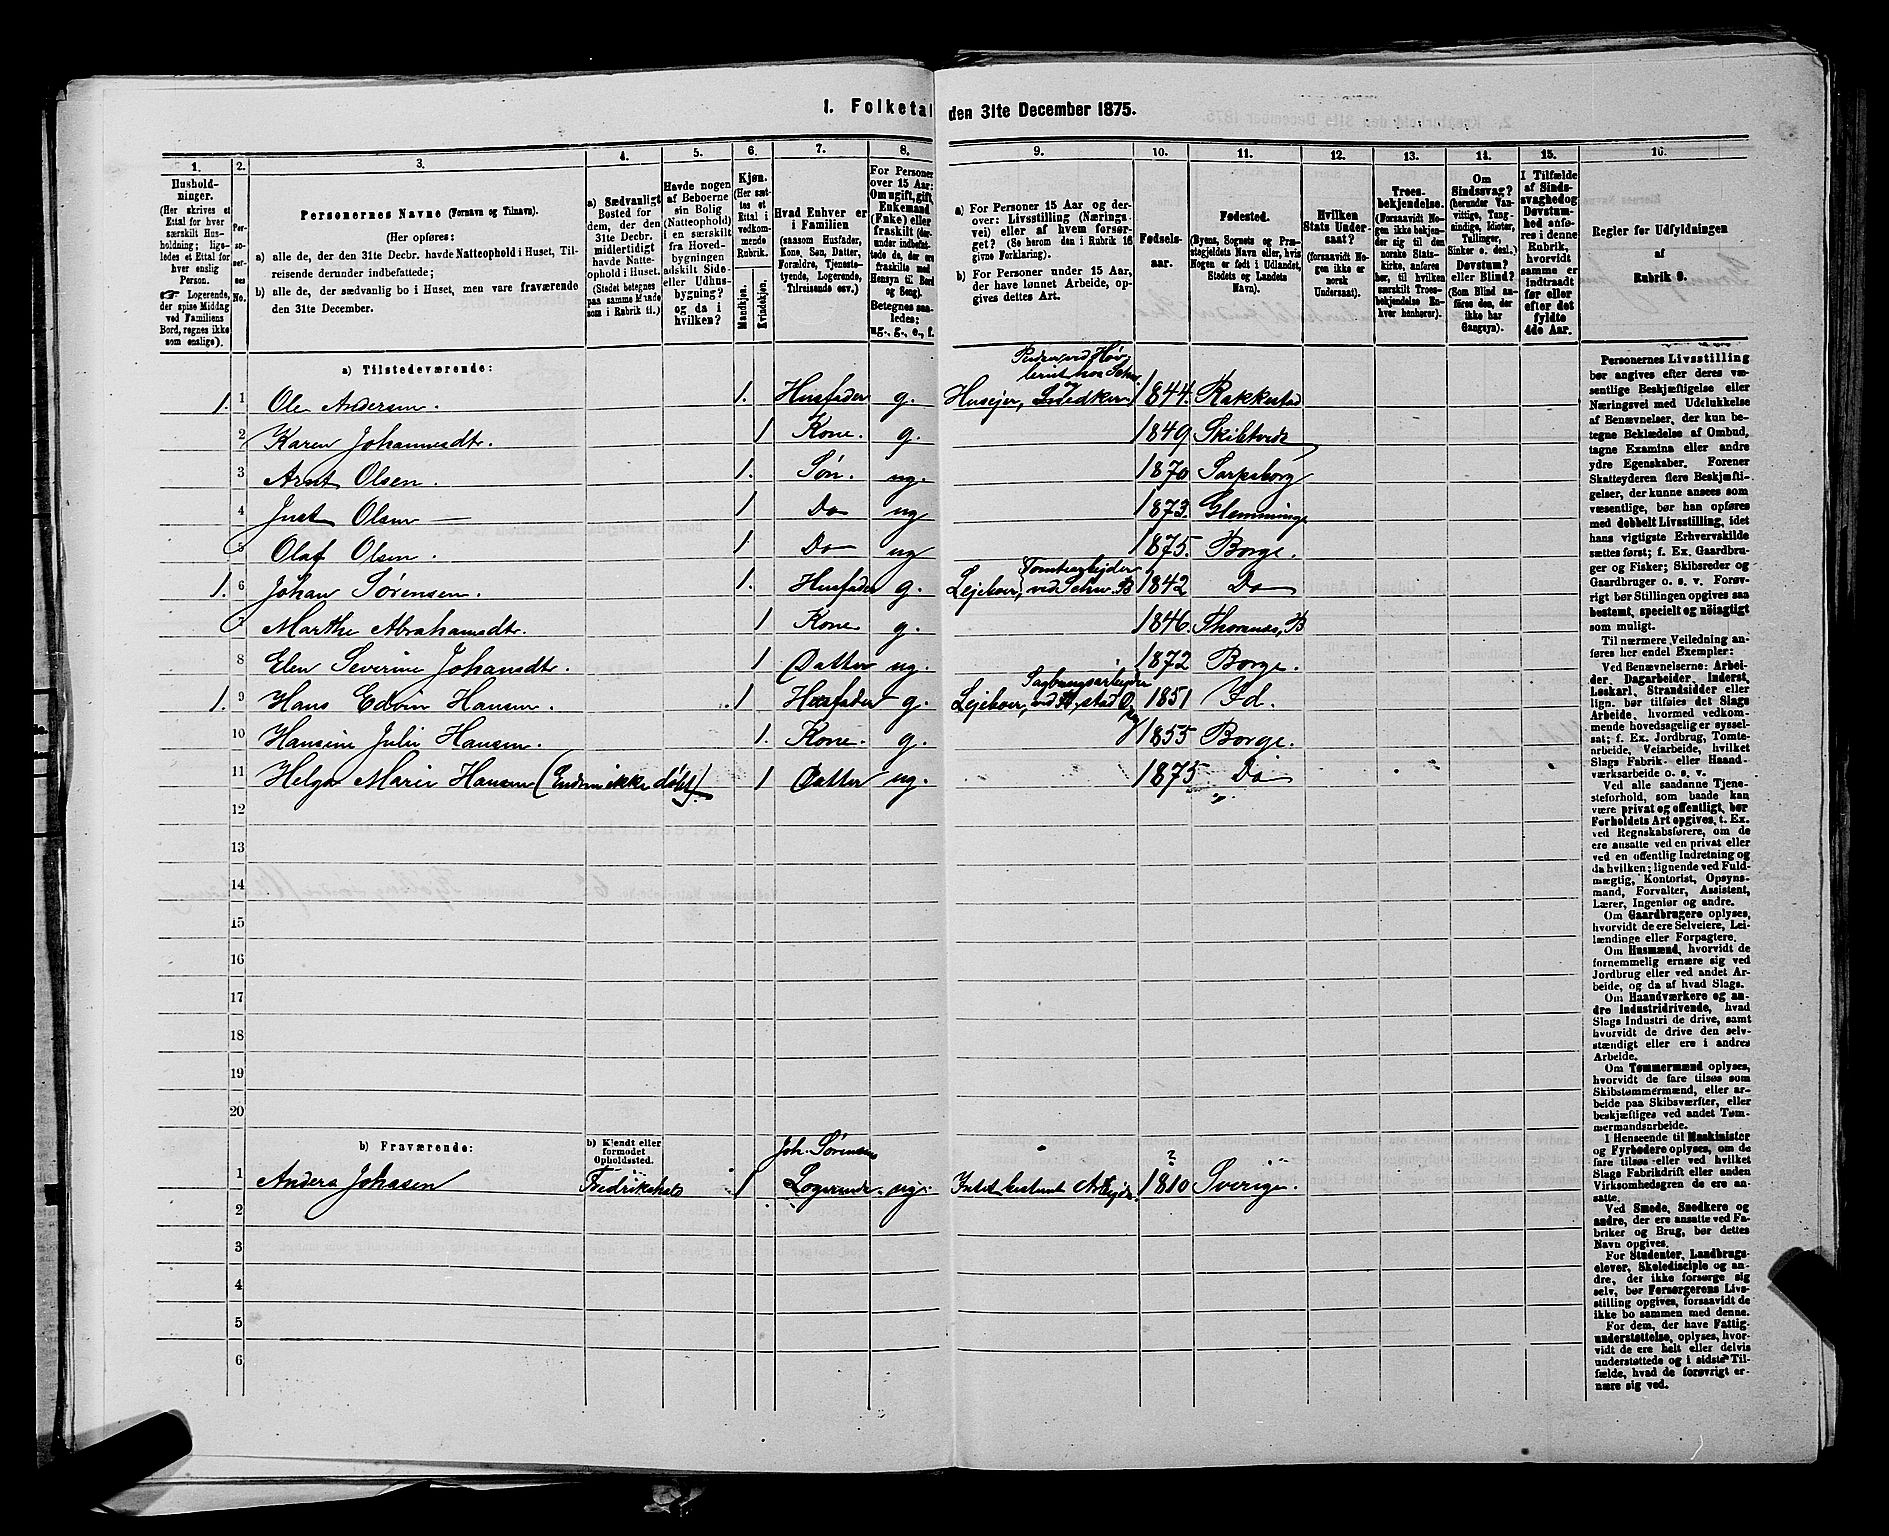 1. Folketal den 31te December 1875.
1. 2. 3. 4. 5. 6. 7. 8. 9. 10. 11. 12. 13. 14. 15. 16.
Hushold-
ninger.
(Her skrives et
Ettal for hver
særskilt Hus-
holdning; lige-
ledes et Ettal for
hver enslig
Person.
☞ Logerende,
der spise Middag
ved Familiens
Bord, regnes ikke
som enslige).
Per-
so-
ner-
nes
No.
Personernes Navne (Fornavn og Tilnavn).
(Her opføres:
a) alle de, der den 31te Decbr. havde Natteophold i Huset, Til-
reisende derunder indbefattede;
b) alle de, der sædvanlig bo i Huset, men vare fraværende
den 31te December.
a) Sædvanligt
Bosted for
dem, der den
31te Decbr.
midlertidigt
havde Natte-
ophold i Huset.
(Stedet betegnes
paa samme Maade
som i Rubrik 11.)
Havde nogen
af Beboerne
sin Bolig
(Natteophold)
i en særskilt
fra Hoved-
bygningen
adskilt Side-
eller Udhus-
bygning?
og da i
hvilken?
Kjøn.
(Her sæt-
tes et
Ettal i
vedkom-
mende
Rubrik.
Mandkjøn.
Kvindekjøn.
Hvad Enhver er
i Familien
(saasom Husfader,
Kone, Søn, Datter,
Forældre, Tjeneste-
tyende, Logerende,
Tilreisende osv.)
For Personer
over 15 Aar:
Om ugift, gift,
Enkemand
(Enke) eller
fraskilt (der-
under indbefat-
tede de, der ere
fraskilte med
Hensyn til Bord
og Seng).
Betegnes saa-
ledes:
ug., g., e., f.
a) For Personer 15 Aar og der-
over: Livsstilling (Nærings-
vei) eller af hvem forsør-
get? (Se herom den i Rubrik 16
givne Forklaring).
b) For Personer under 15 Aar,
der have lønnet Arbeide, op-
gives dettes Art.
Fødsels-
aar.
Fødested.
(Byens, Sognets og Præ-
stegjeldets Navn eller, hvis
Nogen er født i Udlandet,
Stedets og Landets
Navn).
Hvilken
Stats Under-
saat?
(forsaavidt No-
gen ikke er
norsk
Undersaat).
Troes-
bekjendelse.
(Forsaavidt No-
gen ikke bekjen-
der sig til den
norske Stats-
kirke, anføres
her, til hvilken
særskilt Troes-
bekjendelse En-
hver henhører).
Om
Sindssvag?
(herunder Van-
vittige, Tung-
sindige, Idioter,
Tullinger,
Sinker o. desl.).
Døvstum?
eller Blind?
(Som Blind an-
føres den, der
ikke har
Gangsyn).
I Tilfælde
af Sinds-
svaghed og
Døvstum-
hed anfø-
res i denne
Rubrik,
hvorvidt
samme er
indtraadt
før eller
efter det
fyldte
4de Aar.
Regler for Udfyldningen
af
Rubrik 9.
a) Tilstedeværende:
1. 1 Ole Andersen. 1. Husfader g. Husejer, Snedker 1844. Rakkestad
2 Karen Johannesdtr. 1 Kone. g. 1849. Skibtvedt
3 Arnt Olsen. 1. Søn. ug. 1870 Sarpsborg
4 Just Olsen 1 Do ug 1873. Glemminge
5 Olaf Olsen. 1 Do ug 1875. Borge.
Tomtearbejder
1. 6 Johan Sørensen. 1. Husfader g. Lejeboer, ved 1842 Do
7 Marthe Abrahamsdtr. 1 Kone g. 1846. Thorsnæs, B
8 Elen Severine Johansdtr. 1 Datter ug. 1872 Borge.
Sagbrugsarbejder
1. 9 Hans Edvin Hansen. 1 Husfader g. Lejeboer, ved 1851 Id.
10 Hansine Julie Hansen. 1. Kone. g. 1855 Borge.
11 Helga Marie Hansen (Endnu ikke døbt). 1 Datter ug. 1875 Do
12
13
14
15
16
17
18
19
20
b) Fraværende:
b) Kjendt eller
formodet
Opholdssted.
Joh. Sørensens
1 Anders Johasen Fredrikshald 1 Logerende ug. Ubestemt Arbejde. 1810 ? Sverige.
2
3
4
5
6
Personernes Livsstilling
bør angives efter deres væ-
sentlige Beskjæftigelse eller
Næringsvei med Udelukkelse
af Benævnelser, der kun be-
tegne Beklædelse af Ombud,
tagne Examina eller andre
ydre Egenskaber. Forener
Skatteyderen flere Beskjæfti-
gelser, der kunne ansees som
væsentlige, bør han opføres
med dobbelt Livsstilling, idet
hans vigtigste Erhvervskilde
sættes først; f. Ex. Gaardbru-
ger og Fisker; Skibsreder og
Gaardbruger o. s. v. Forøv-
rigt bør Stillingen opgives saa
bestemt, specielt og nöiagtigt
som muligt.
Til nærmere Veiledning an-
føres her endel Exempler:
Ved Benævnelserne: Arbei-
der, Dagarbeider, Inderst,
Løskarl, Strandsidder eller
lign. bør tilføies det Slags
Arbeide, hvormed vedkom-
mende hovedsagelig er syssel-
sat; f. Ex. Jordbrug, Tomte-
arbeide, Veiarbeide, hvilket
Slags Fabrik- eller Haand-
værksarbeide o. s. v.
Ved alle saadanne Tjene-
steforhold, som baade kan
være privat og offentligt, bør
Forholdets Art opgives, t. Ex.
ved Regnskabsførere, om de
ere ansatte ved en privat eller
ved en offentlig Indretning og
da hvilken; lignende ved Fuld-
mægtig, Kontorist, Opsyns-
mand, Forvalter, Assistent,
Lærer, Ingeniør og andre.
Om Gaardbrugere oplyses,
hvorvidt de ere Selveiere, Lei-
lændinge eller Forpagtere.
Om Husmænd, hvorvidt de
fornemmelig ernære sig ved
Jordbrug eller ved andet Ar-
beide, og da af hvad Slags.
Om Haandværkere og an-
dre Industridrivende, hvad
Slags Industri de drive, samt
hvorvidt de drive den selv-
stændigt eller ere i andres
Arbeide.
Om Tømmermænd oplyses,
hvorvidt de fare tilsøs som
Skibstømmermænd, eller ar-
beide paa Skibsværfter, eller
beskjæftiges ved andet Tøm-
mermandsarbeide.
I Henseende til Maskinister
og Fyrbødere oplyses, om de
fare tilsøs eller ved hvilket
Slags Fabrikdrift eller anden
Virksomhedsgren de ere an-
satte.
Ved Smede, Snedkere og
andre, der ere ansatte ved Fa-
briker og Brug, bør dettes
Navn opgives.
For Studenter, Landbrugs-
elever, Skoledisciple og an-
dre, der ikke forsørge sig
selv, bør Forsørgerens Livs-
stilling opgives, forsaavidt de
ikke bo sammen med denne.
For dem, der have Fattig-
understøttelse, oplyses, hvor-
vidt de ere helt eller delvis
understøttede og i sidste Til-
fælde, hvad de forøvrigt er-
nære sig ved.